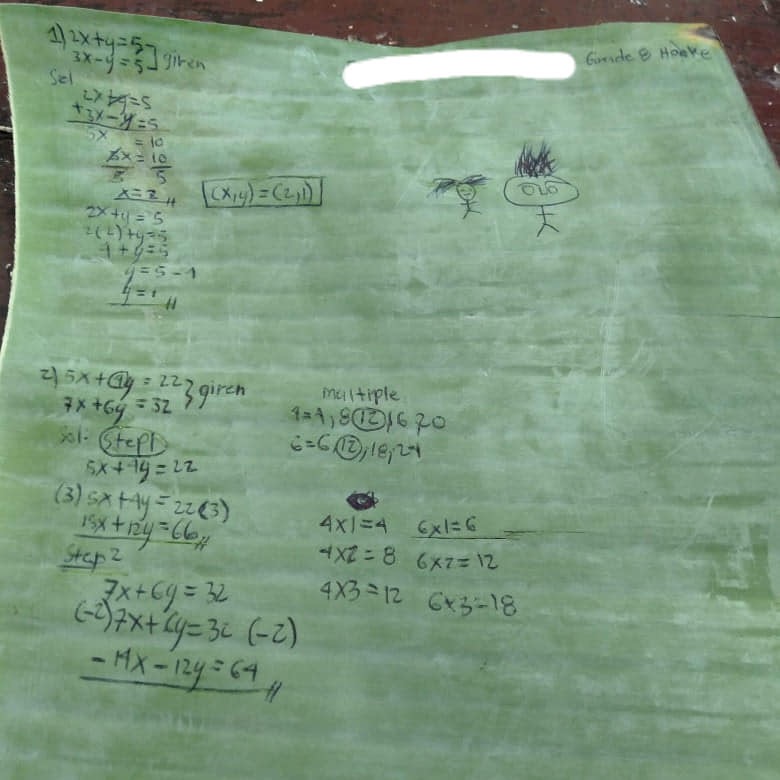 1) 2x+y=5
3x-y=5 ] given
Grade 8 Hooke
Sol
2x+y=5
+3x-y=5
5x = 10
5x = 10
5 5
x=2 //
(x,y)=(2,1)
2x+y=5
2(2)+y=5
4+y=5
y=5-4
y=1 //
2) 5x+4y=22 } given
7x+6y=32
Sol. Step1
5x+4y=22
(3) 5x+4y=22(3)
15x+12y=66 //
Step 2
7x+6y=32
(-2)7x+6y=32 (-2)
-14x-12y=64 //
multiple
4=4,8,12,16,20
6=6,12,18,24
4x1=4 6x1=6
4x2=8 6x2=12
4x3=12 6x3=18